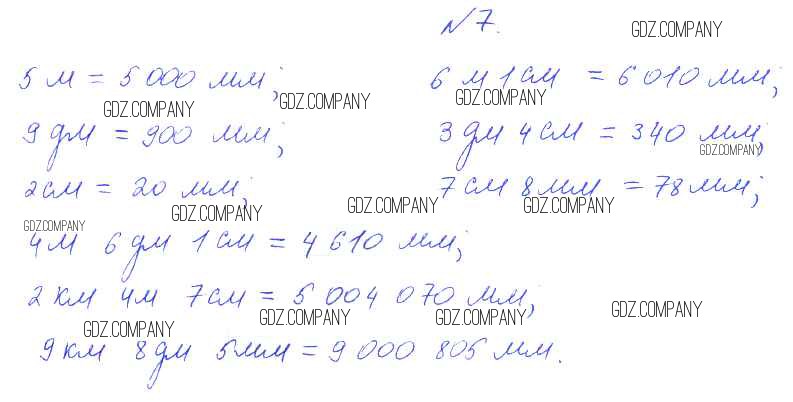 №7.
GDZ.COMPANY
5 м = 5 000 мм; 6 м 1 см = 6 010 мм;
GDZ.COMPANY GDZ.COMPANY GDZ.COMPANY
9 дм = 900 мм; 3 дм 4 см = 340 мм;
GDZ.COMPANY
2 см = 20 мм; 7 см 8 мм = 78 мм;
GDZ.COMPANY GDZ.COMPANY GDZ.COMPANY
GDZ.COMPANY
4 м 6 дм 1 см = 4 610 мм;
2 км 4 м 7 см = 5 004 070 мм;
GDZ.COMPANY GDZ.COMPANY GDZ.COMPANY GDZ.COMPANY
9 км 8 дм 5 мм = 9 000 805 мм.